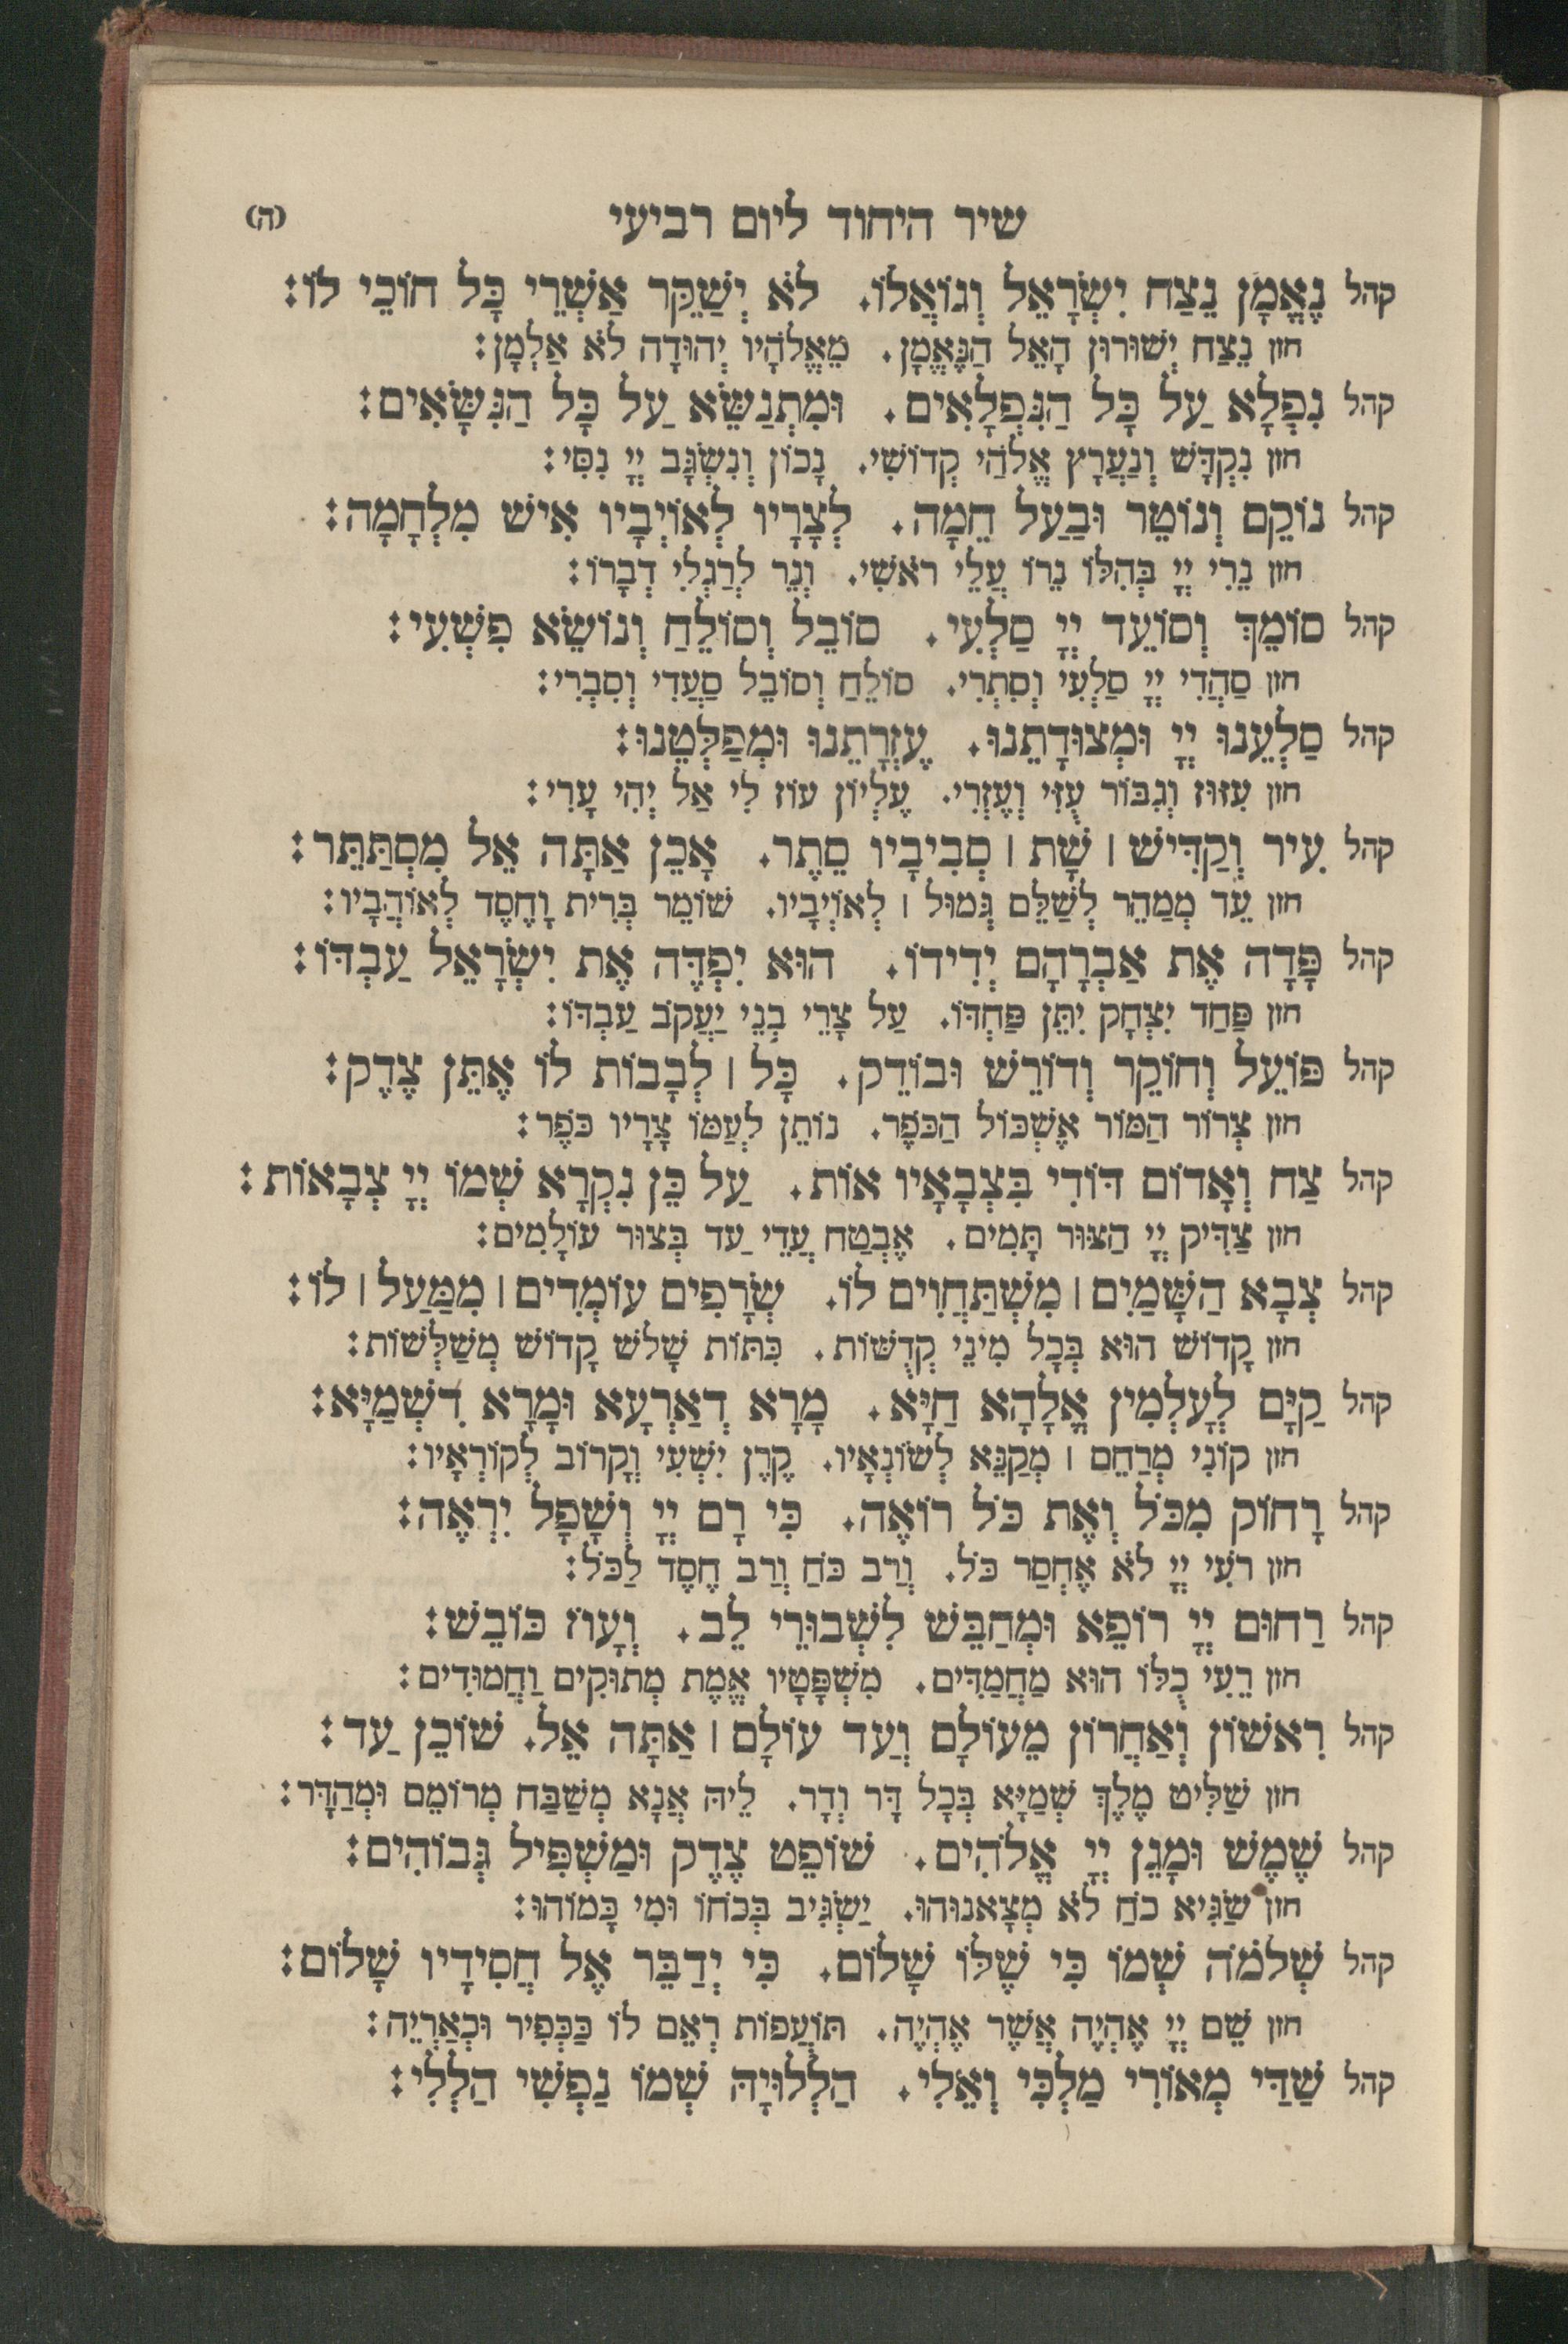 שיר היחוד ליום רביעי (ה)
קהל נֶאֱמָן נֵצַח יִשְׂרָאֵל וְגוֹאֲלוֹ. לֹא יְשַׁקֵּר אַשְׁרֵי כָּל חוֹכֵי לוֹ:
חזן נֵצַח יְשׁוּרוּן הָאֵל הַנֶּאֱמָן. מֵאֱלֹהָיו יְהוּדָה לֹא אַלְמָן:
קהל נִפְלָא עַל כָּל הַנִּפְלָאִים. וּמִתְנַשֵּׂא עַל כָּל הַנִּשָּׂאִים:
חזן נִקְדָּשׁ וְנַעֲרָץ אֱלֹהַי קְדוֹשִׁי. נָכוֹן וְנִשְׂגָּב יְיָ נִסִּי:
קהל נוֹקֵם וְנוֹטֵר וּבַעַל חֵמָה. לְצָרָיו לְאוֹיְבָיו אִישׁ מִלְחָמָה:
חזן נֵרִי יְיָ בְּהִלּוֹ נֵרוֹ עֲלֵי רֹאשִׁי. וְנֵר לְרַגְלִי דְבָרוֹ:
קהל סוֹמֵךְ וְסוֹעֵד יְיָ סַלְעִי. סוֹבֵל וְסוֹלֵחַ וְנוֹשֵׂא פִשְׁעִי:
חזן סַהֲדִי יְיָ סַלְעִי וְסִתְרִי. סוֹלֵחַ וְסוֹבֵל סַעֲדִי וְסִבְרִי:
קהל סַלְעֵנוּ יְיָ וּמְצוּדָתֵנוּ. עֶזְרָתֵנוּ וּמְפַלְּטֵנוּ:
חזן עִזּוּז וְגִבּוֹר עֻזִּי וְעֶזְרִי. עֶלְיוֹן עוֹז לִי אַל יְהִי עָרִי:
קהל עִיר וְקַדִּישׁ ׀ שָׁת ׀ סְבִיבָיו סֵתֶר. אָכֵן אַתָּה אֵל מִסְתַּתֵּר:
חזן עֵד מְמַהֵר לְשַׁלֵּם גְּמוּל ׀ לְאוֹיְבָיו. שׁוֹמֵר בְּרִית וָחֶסֶד לְאוֹהֲבָיו:
קהל פָּדָה אֶת אַבְרָהָם יְדִידוֹ. הוּא יִפְדֶּה אֶת יִשְׂרָאֵל עַבְדּוֹ:
חזן פַּחַד יִצְחָק יִתֵּן פַּחְדּוֹ. עַל צָרֵי בְּנֵי יַעֲקֹב עַבְדּוֹ:
קהל פּוֹעֵל וְחוֹקֵר וְדוֹרֵשׁ וּבוֹדֵק. כָּל ׀ לְבָבוֹת לוֹ אֶתֵּן צֶדֶק:
חזן צְרוֹר הַמּוֹר אֶשְׁכּוֹל הַכֹּפֶר. נוֹתֵן לְעַמּוֹ צָרָיו כֹּפֶר:
קהל צַח וְאָדוֹם דּוֹדִי בִּצְבָאָיו אוֹת. עַל כֵּן נִקְרָא שְׁמוֹ יְיָ צְבָאוֹת:
חזן צַדִּיק יְיָ הַצּוּר תָּמִים. אֶבְטַח עֲדֵי עַד בְּצוּר עוֹלָמִים:
קהל צְבָא הַשָּׁמַיִם ׀ מִשְׁתַּחֲוִים לוֹ. שְׂרָפִים עוֹמְדִים ׀ מִמַּעַל ׀ לוֹ:
חזן קָדוֹשׁ הוּא בְּכָל מִינֵי קְדֻשּׁוֹת. כִּתּוֹת שָׁלֹשׁ קָדוֹשׁ מְשַׁלְּשׁוֹת:
קהל קַיָּם לְעָלְמִין אֱלָהָא חַיָּא. מָרָא דְאַרְעָא וּמָרָא דִשְׁמַיָּא:
חזן קוֹנִי מְרַחֵם ׀ מְקַנֵּא לְשׂוֹנְאָיו. קֶרֶן יִשְׁעִי וְקָרוֹב לְקוֹרְאָיו:
קהל רָחוֹק מִכֹּל וְאֶת כֹּל רוֹאֶה. כִּי רָם יְיָ וְשָׁפָל יִרְאֶה:
חזן רֹעִי יְיָ לֹא אֶחְסַר כֹּל. וְרַב כֹּחַ וְרַב חֶסֶד לַכֹּל:
קהל רַחוּם יְיָ רוֹפֵא וּמְחַבֵּשׁ לִשְׁבוּרֵי לֵב. וְעָוֹז כּוֹבֵשׁ:
חזן רֵעִי כֻלּוֹ הוּא מַחֲמַדִּים. מִשְׁפָּטָיו אֱמֶת מְתוּקִים וַחֲמוּדִים:
קהל רִאשׁוֹן וְאַחֲרוֹן מֵעוֹלָם וְעַד עוֹלָם ׀ אַתָּה אֵל. שׁוֹכֵן עַד:
חזן שַׁלִּיט מֶלֶךְ שְׁמַיָּא בְּכָל דָּר וְדָר. לֵיהּ אֲנָא מְשַׁבַּח מְרוֹמֵם וּמְהַדָּר:
קהל שֶׁמֶשׁ וּמָגֵן יְיָ אֱלֹהִים. שׁוֹפֵט צֶדֶק וּמַשְׁפִּיל גְּבוֹהִים:
חזן שַׂגִּיא כֹחַ לֹא מְצָאנוּהוּ. יַשְׂגִּיב בְּכֹחוֹ וּמִי כָּמוֹהוּ:
קהל שְׁלֹמֹה שְׁמוֹ כִּי שֶׁלּוֹ שָׁלוֹם. כִּי יְדַבֵּר אֶל חֲסִידָיו שָׁלוֹם:
חזן שֵׁם יְיָ אֶהְיֶה אֲשֶׁר אֶהְיֶה. תּוֹעֲפוֹת רְאֵם לוֹ כַּכְּפִיר וּכְאַרְיֵה:
קהל שַׁדַּי מְאוֹרִי מַלְכִּי וְאֵלִי. הַלְלוּיָהּ שְׁמוֹ נַפְשִׁי הַלְלִי: